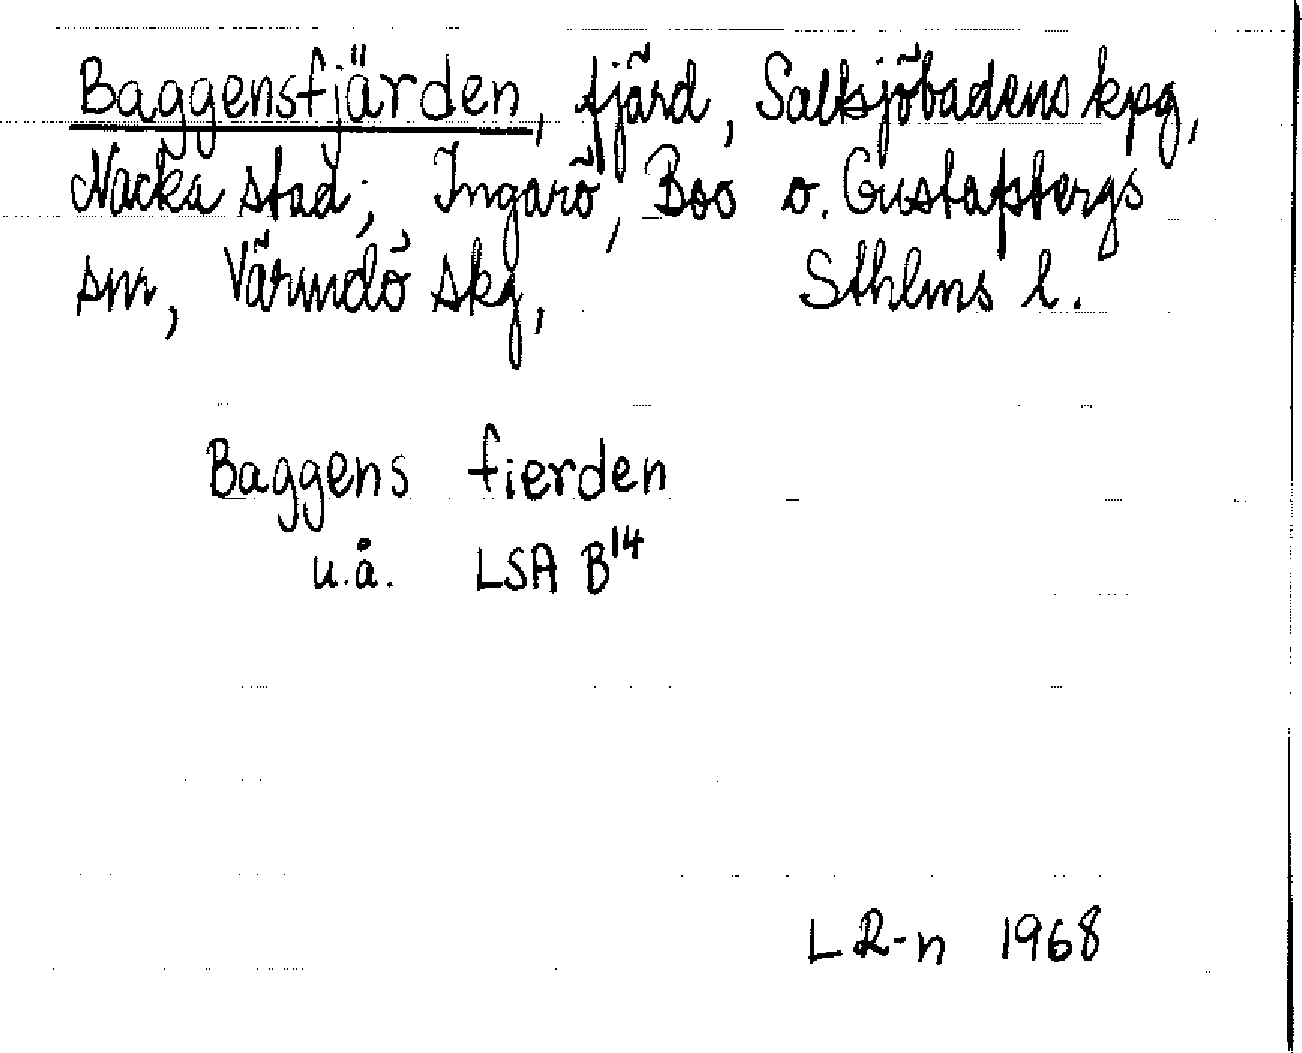 Baggensfjärden, fjärd, Saltsjöbadens kpg,
Nacka stad; Ingarö, Boo o. Gustafsbergs
snr, Värmdö skg, Sthlms l.
Baggens fierden
u.å. LSA B14
LR-n 1968